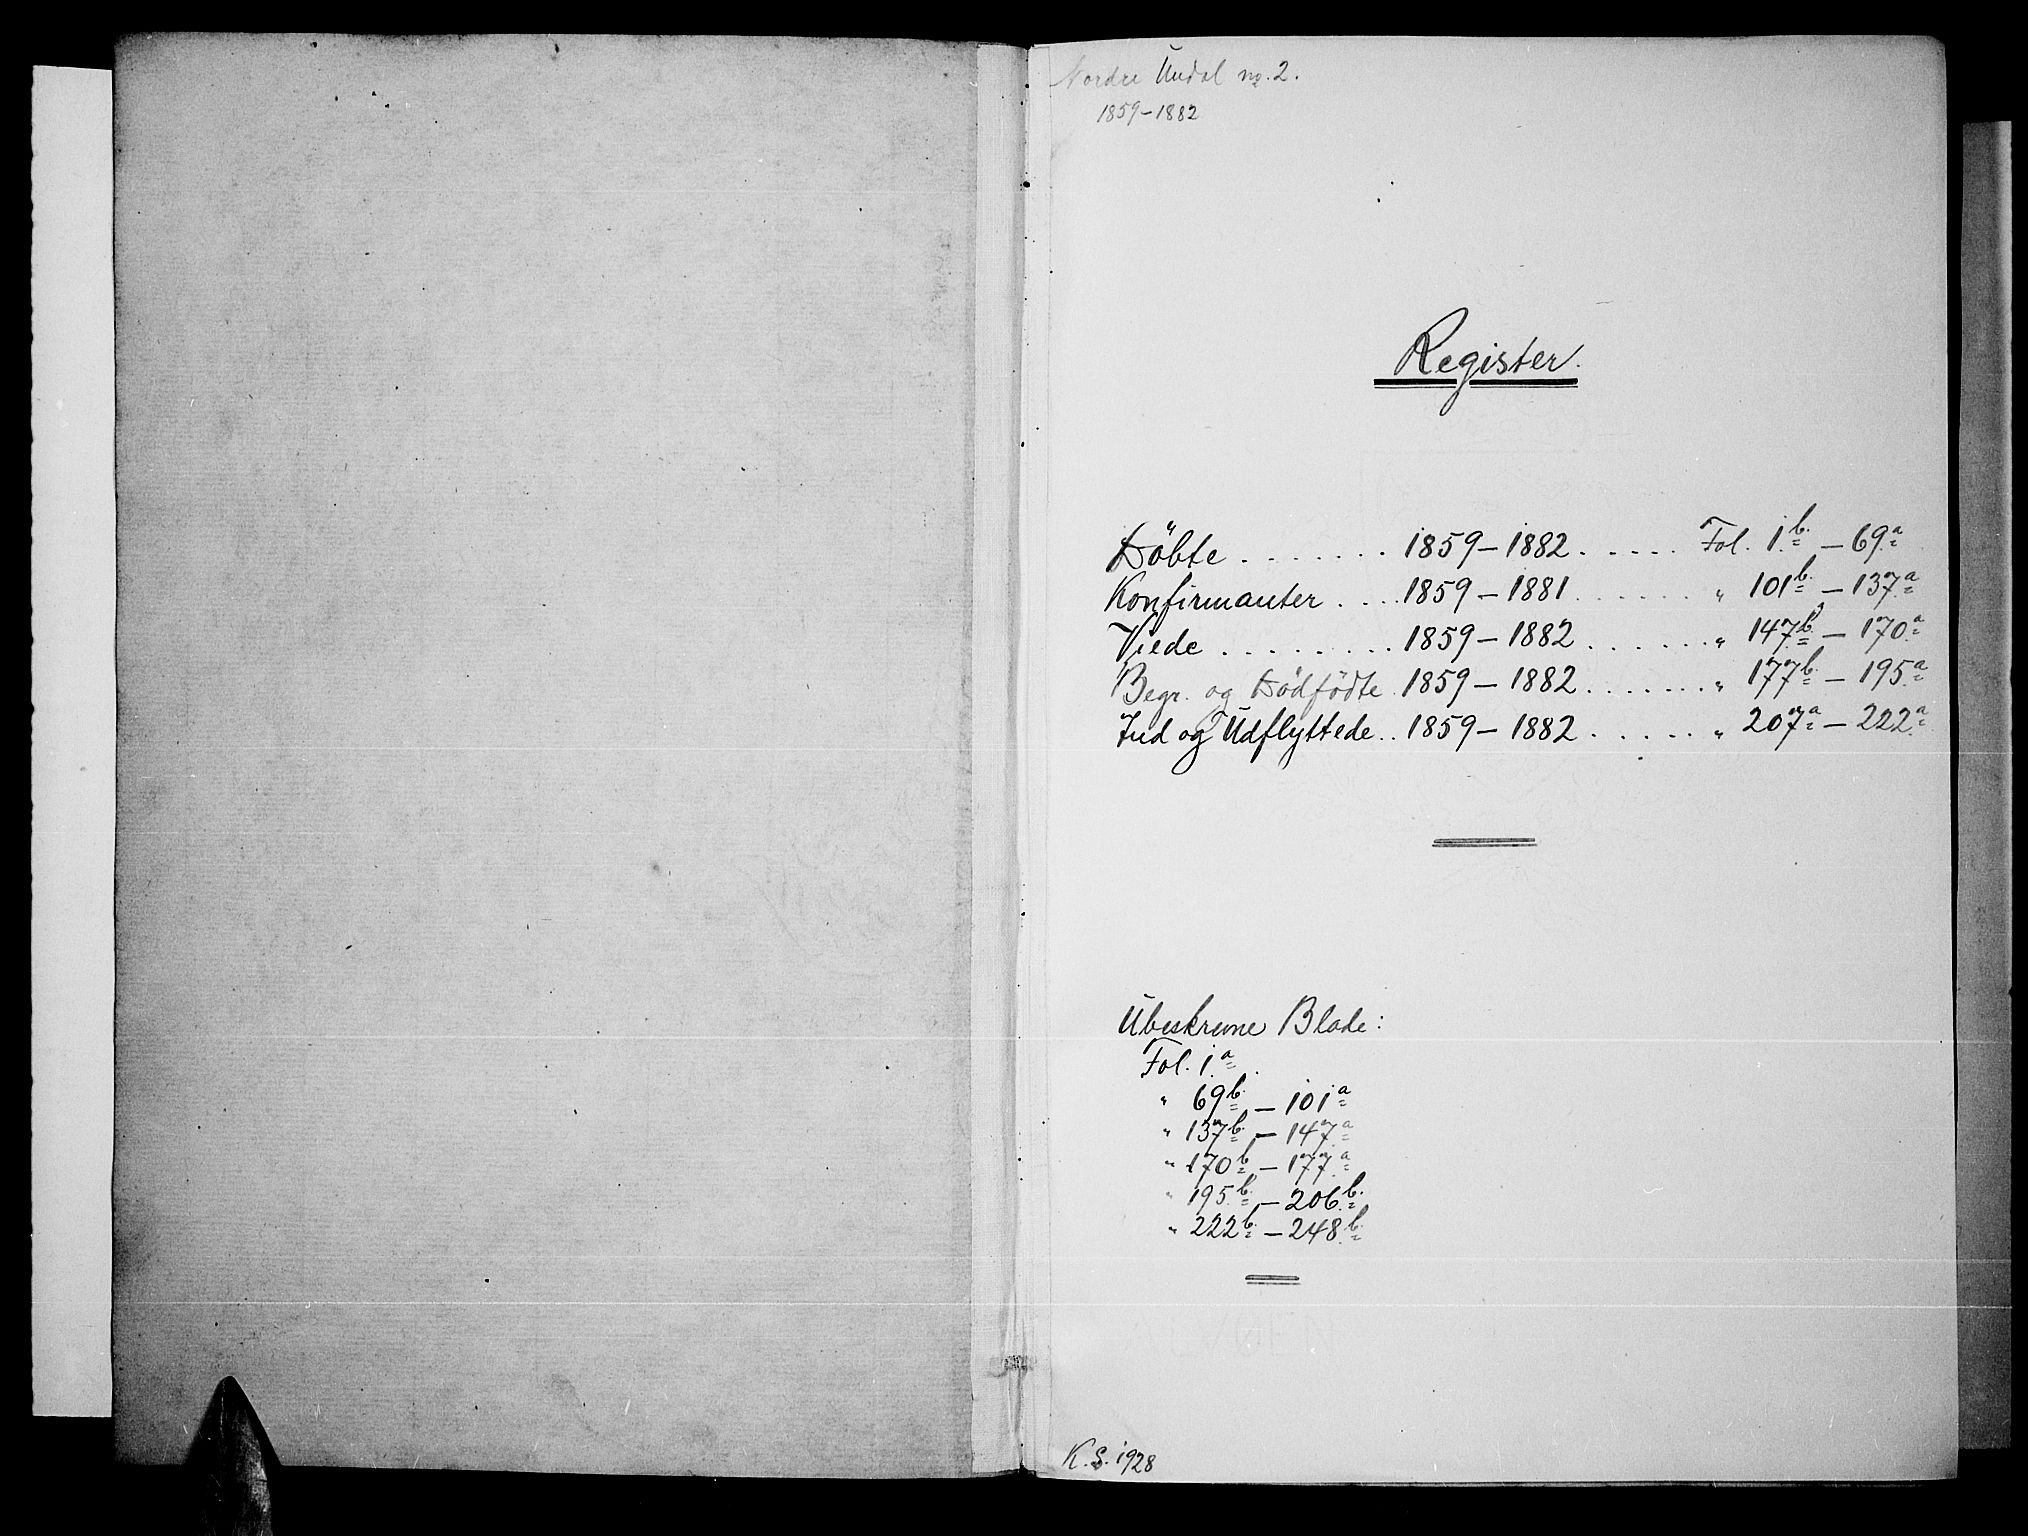 Nordre Undal no. 2.
1859-1882
Register.
Döbte ....... 1859-1882 ..... Fol. 1b. - 69a
Konfirmanter .... 1859-1881 ...... " 101b. - 137a
Viede ......... 1859-1882 ...... " 147b. - 170a
Begr. og Dödfödte. 1859-1882 ....... " 177b. - 195a
Ind og Udflyttede .. 1859-1882 ...... " 207a - 222a
Ubeskrevne Blade:
Fol. 1a.
" 69b. - 101a
" 137b. - 147a
" 170b - 177a
" 195b. - 206b.
" 222b. - 248b.
K. S. 1928